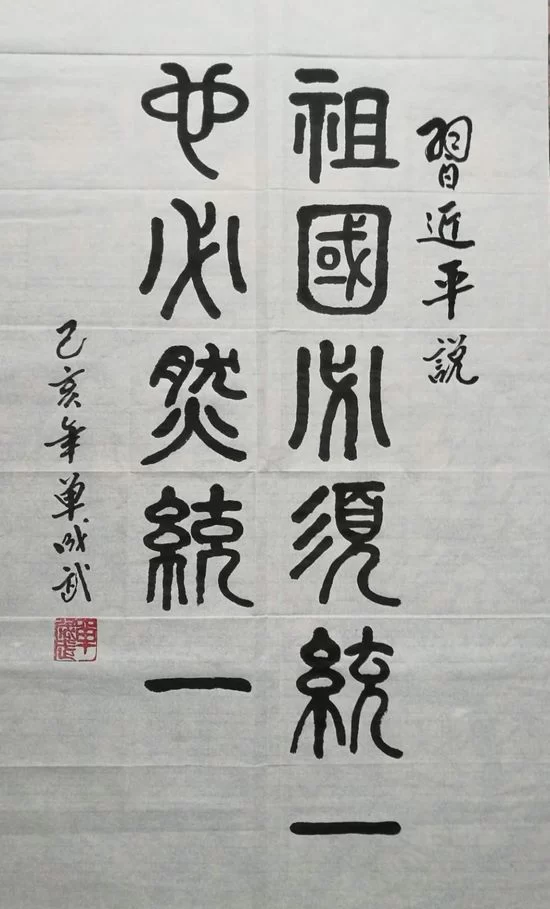 習近平説
祖國必須統一
也必然統一
己亥年単成武